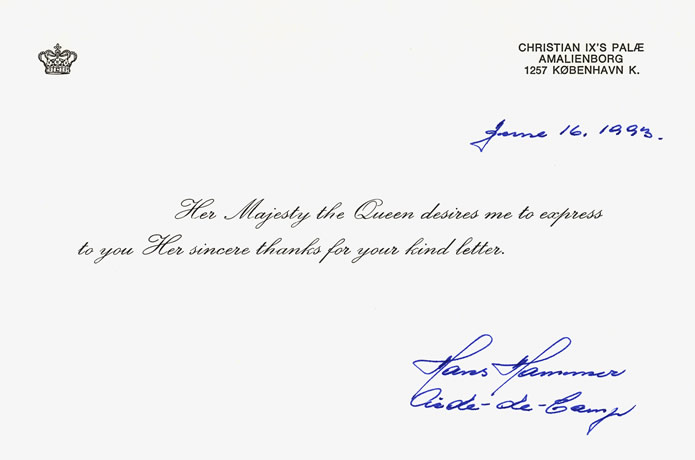 CHRISTIAN IX'S PALÆ
AMALIENBORG
1257 KØBENHAVN K.
June 16. 1993.
Her Majesty the Queen desires me to express
to you Her sincere thanks for your kind letter.
Hans Hammer
Aide-de-Camp